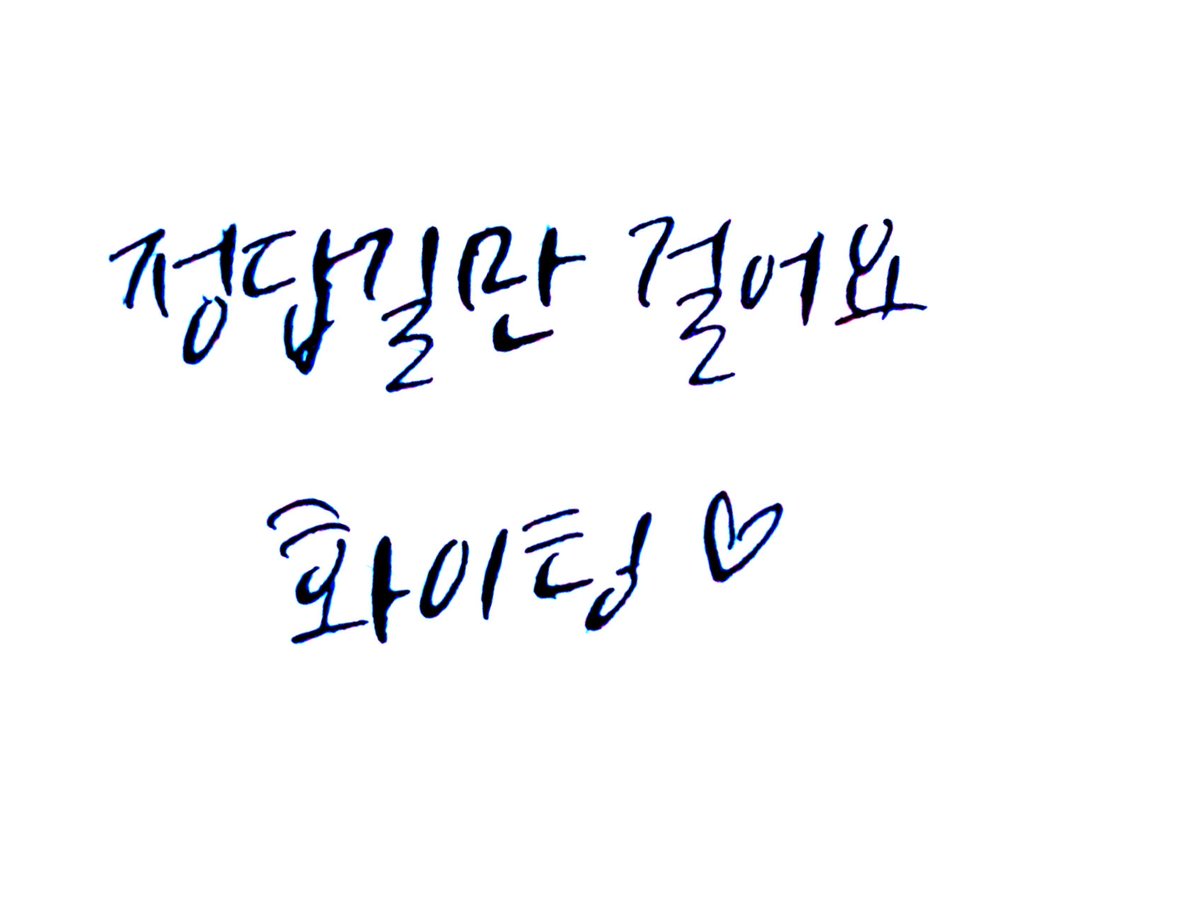 정답길만 걸어요
화이팅 ♡